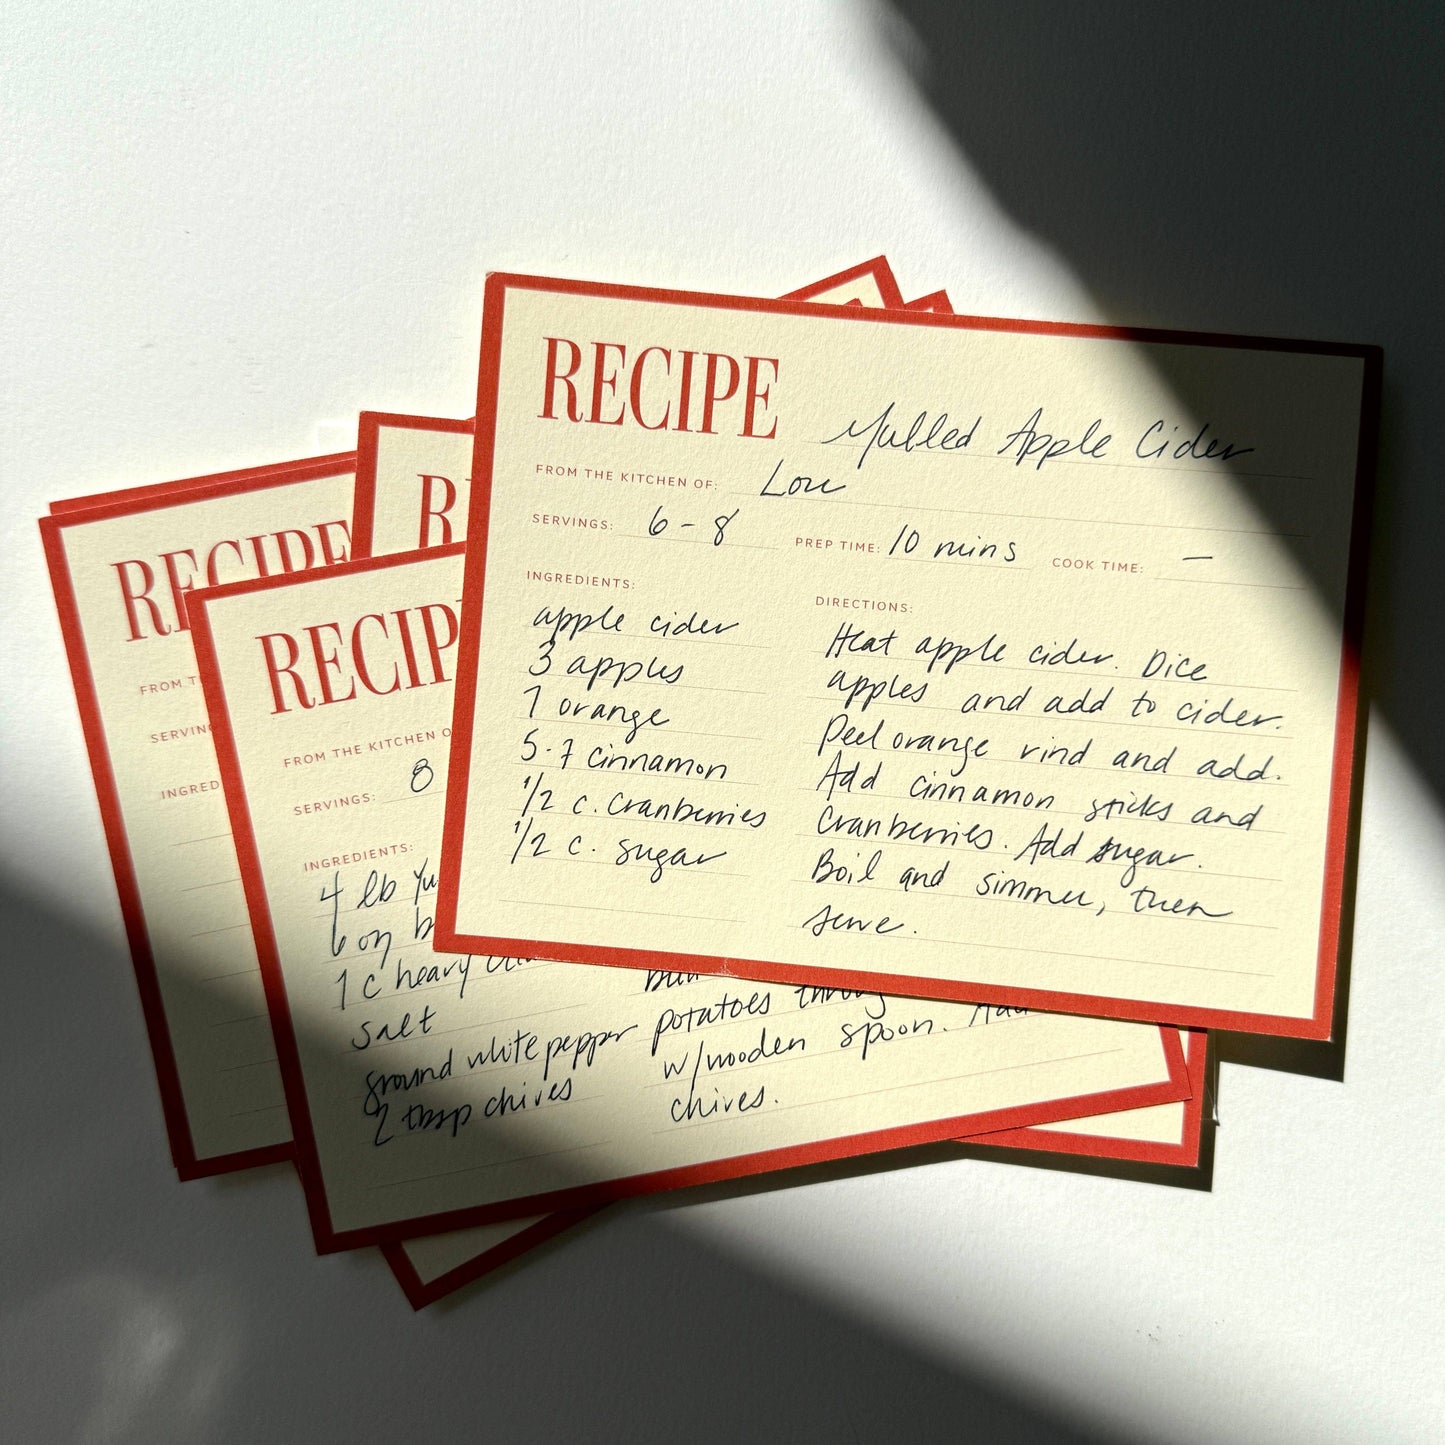 RECIPE Mulled Apple Cider
FROM THE KITCHEN OF: Lou
SERVINGS: 6-8 PREP TIME: 10 mins COOK TIME: —
INGREDIENTS:
apple cider
3 apples
1 orange
5-7 cinnamon
1/2 c. cranberries
1/2 c. sugar
DIRECTIONS:
Heat apple cider. Dice
apples and add to cider.
Peel orange rind and add.
Add cinnamon sticks and
cranberries. Add sugar.
Boil and simmer, then
serve.
RECIP
FROM THE KITCHEN O
SERVINGS: 8
INGREDIENTS:
4 lb Yu
6 oz b
1 c heavy
salt
ground white pepper
2 tbsp chives
potatoes
w/wooden spoon.
chives.
R
RECIPE
FROM T
SERVING
INGRED